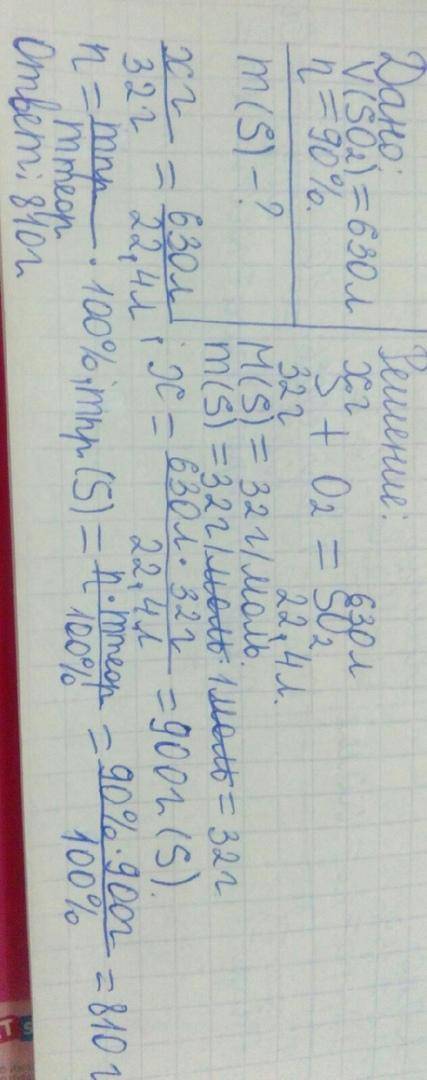 Дано:
V(SO2) = 630л
η = 90%.
m(S) - ?
Решение:
xг 630л
S + O2 = SO2
32г 22,4л.
M(S) = 32г/моль.
m(S) = 32г/моль · 1моль = 32г
xг/32г = 630л/22,4л; x = 630л · 32г/22,4л = 900г (S).
η = mпр/mтеор · 100%; mпр(S) = η · mтеор/100% = 90% · 900г/100% = 810г
Ответ: 810г